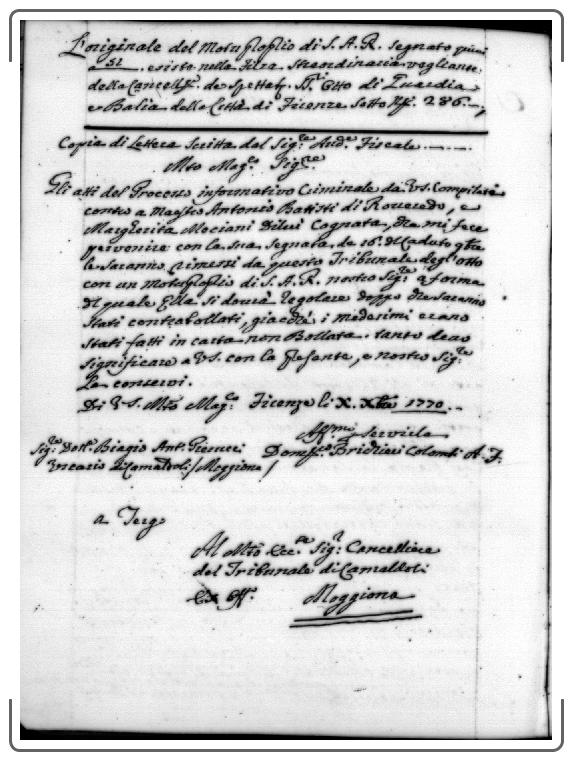 L'originale del Motuproprio di S. A. R. segnato
a 51. esiste nella Filza Straordinaria vegliante
della Cancell.ª de Spettab. SS.ri Otto di Guardia
e Balìa della Città di Firenze Sotto N.º 286.
Copia di Lettera Scritta dal Sig.re Aud.re Fiscale
Mto Mag.co Sig.re
Gli atti del Processo informativo Criminale da VS. Compilato
contro a Maestro Antonio Batisti di Rovereto, e
Margherita Mociani di lui Cognata, che mi fece
pervenire con la sua segnata de 16. del Caduto
le saranno rimessi da questo Tribunale degl'Otto
con un Motuproprio di S. A. R. nostro Sig.re a forma
del quale Ella si dovrà regolare doppo che saranno
stati contrabollati, giacchè i medesimi erano
stati fatti in carta non Bollata. tanto devo
significare a VS. con la presente, e nostro Sig.re
La conservi.
Di VS. Mto Mag.ca Firenze li X. Xbre 1770.
Aff.mo Servitore
Sig.re Dott.e Biagio Ant.º Domen.co Brichieri Colombi A. F.
Vicario di Camaldoli / Moggiona /
a Tergo
Al Mto Ecc.te Sig.r Cancelliere
del Tribunale di Camaldoli
Ex Off.º Moggiona